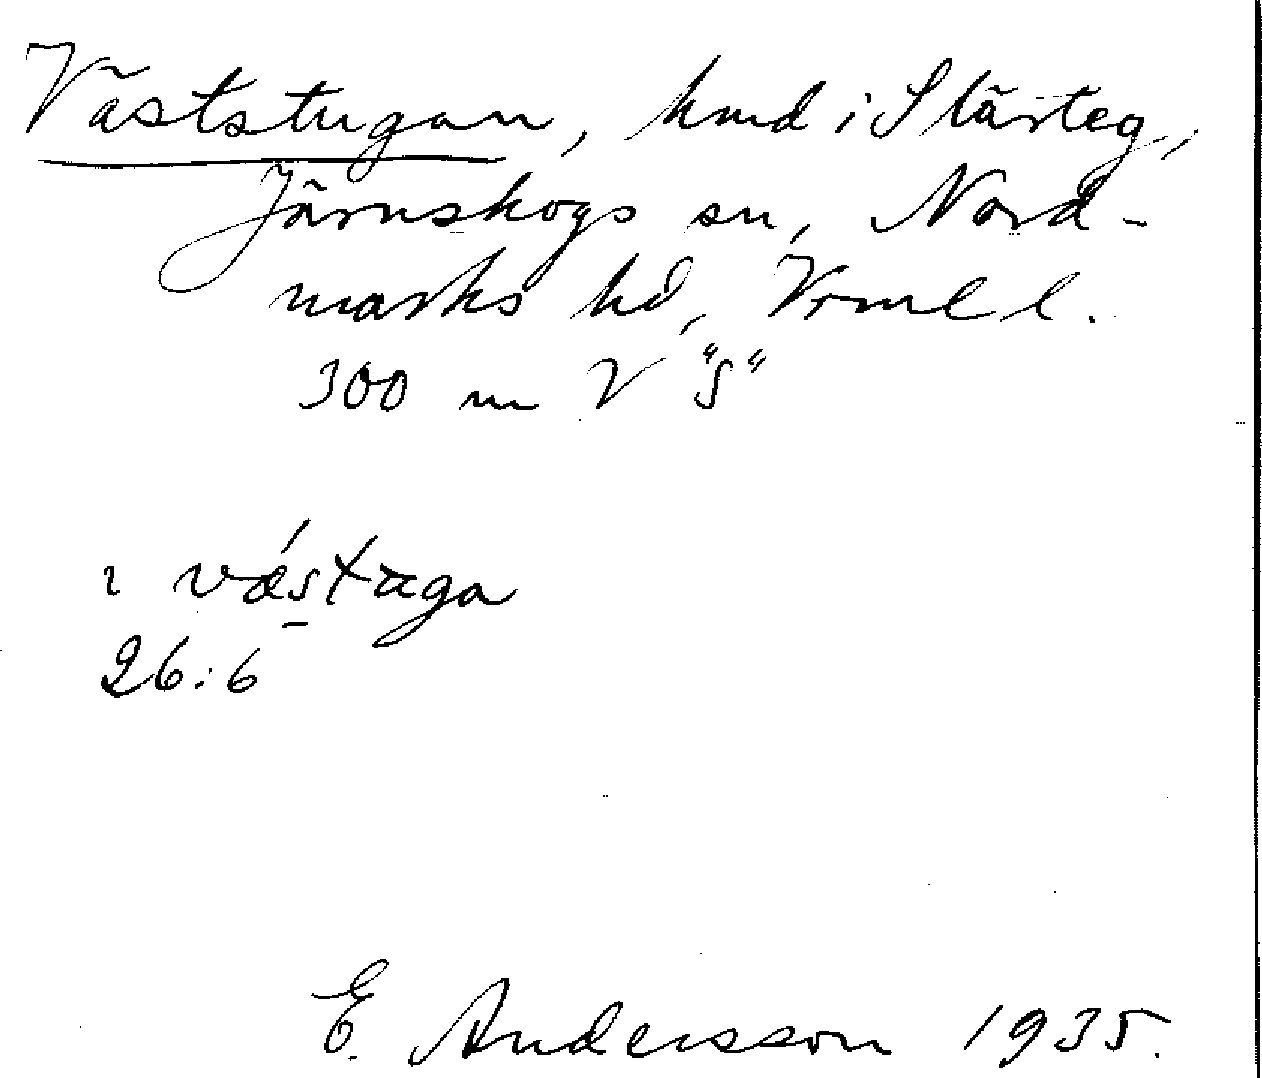 Väststugan, hmd i Slärteg,
Järnskogs sn, Nord-
marks hd, Vrml l.
300 m V "S"
ı vǽstaga
26:6
E. Andersson 1935.